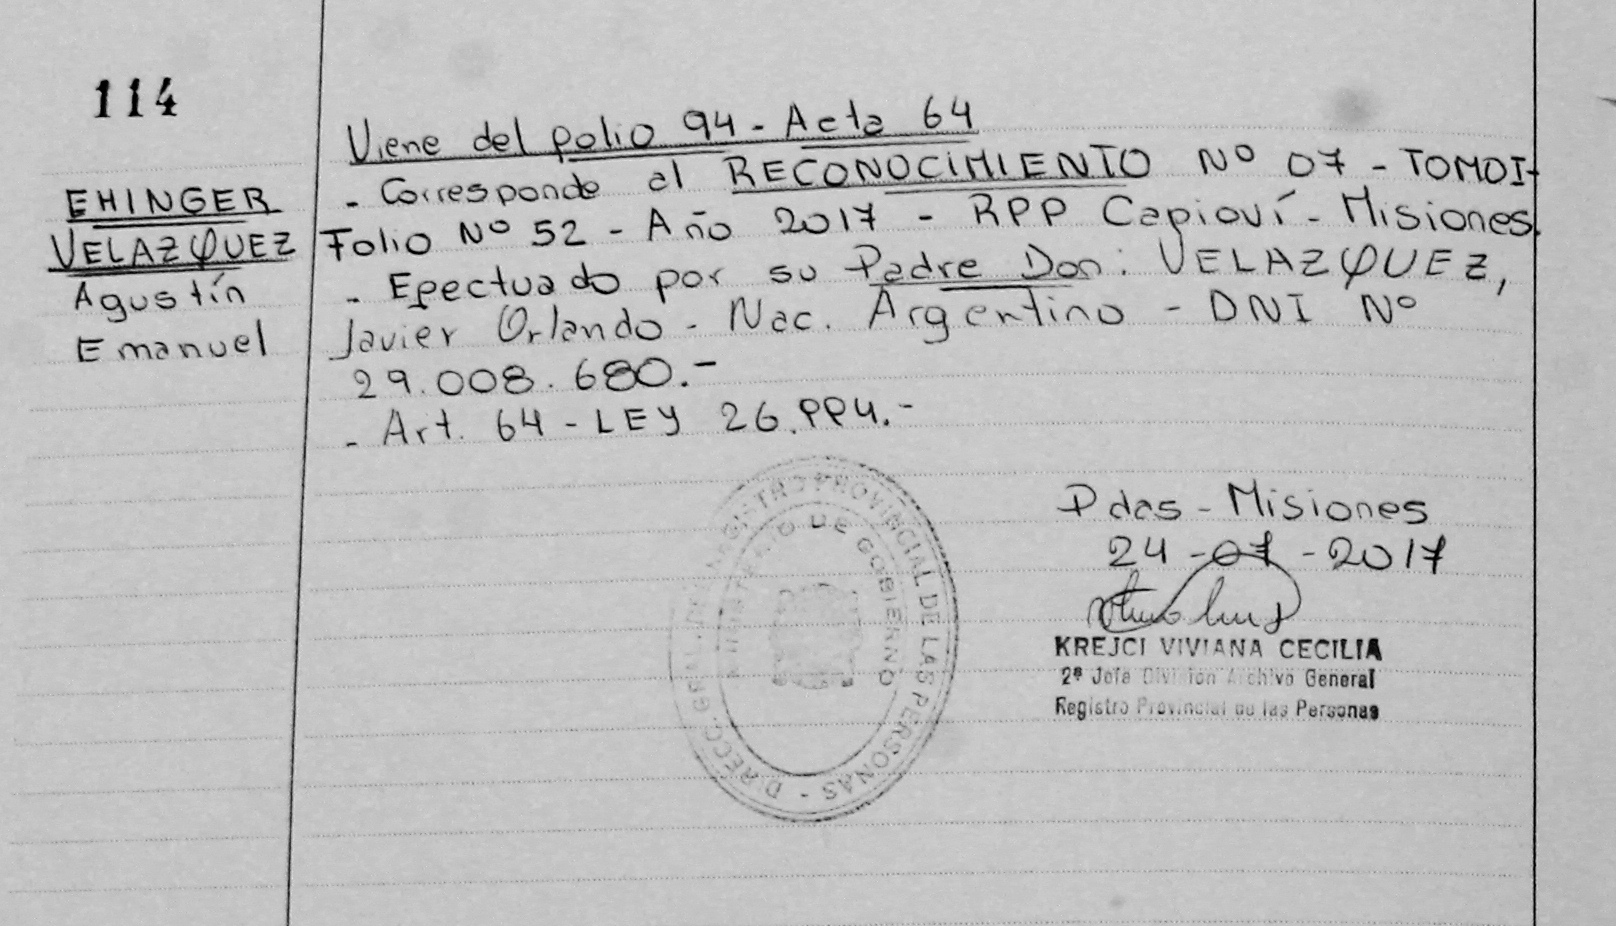 114
EHINGER
VELAZQUEZ
Agustín
Emanuel
Viene del folio 94 - Acta 64
- Corresponde al RECONOCIMIENTO Nº 07 - TOMO I -
Folio Nº 52 - Año 2017 - RPP Capioví - Misiones.
- Efectuado por su Padre Don: VELAZQUEZ,
Javier Orlando - Nac. Argentino - DNI Nº
29.008.680.-
- Art. 64 - LEY 26.994.-
Pdas - Misiones
24 - 07 - 2017
KREJCI VIVIANA CECILIA
2ª Jefa División Archivo General
Registro Provincial de las Personas
REGISTRO PROVINCIAL DE LAS PERSONAS -
MINISTERIO DE GOBIERNO